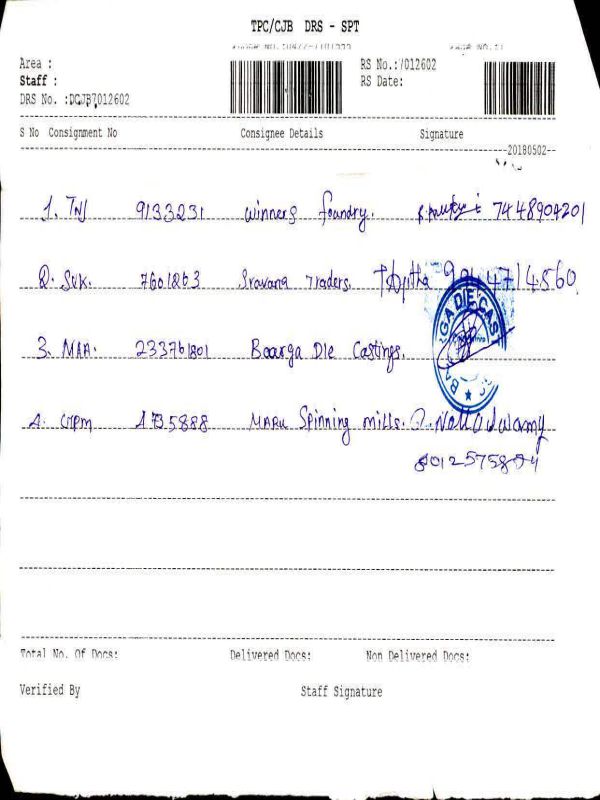 TPC/CJB DRS - SPT
Area : RS No.:7012602
Staff : RS Date:
DRS No. :DCJB7012602
S No Consignment No Consignee Details Signature
20180502
1. TNJ 9133231 Winners foundry. 7448904201
2. SVK. 7601263 Sravana Traders.
3. MAA. 233761801 Baarga Die Castings.
GA DIE CAS
4. 1735888 MARU Spinning mills.
Total No. Of Docs: Delivered Docs: Non Delivered Docs:
Verified By Staff Signature